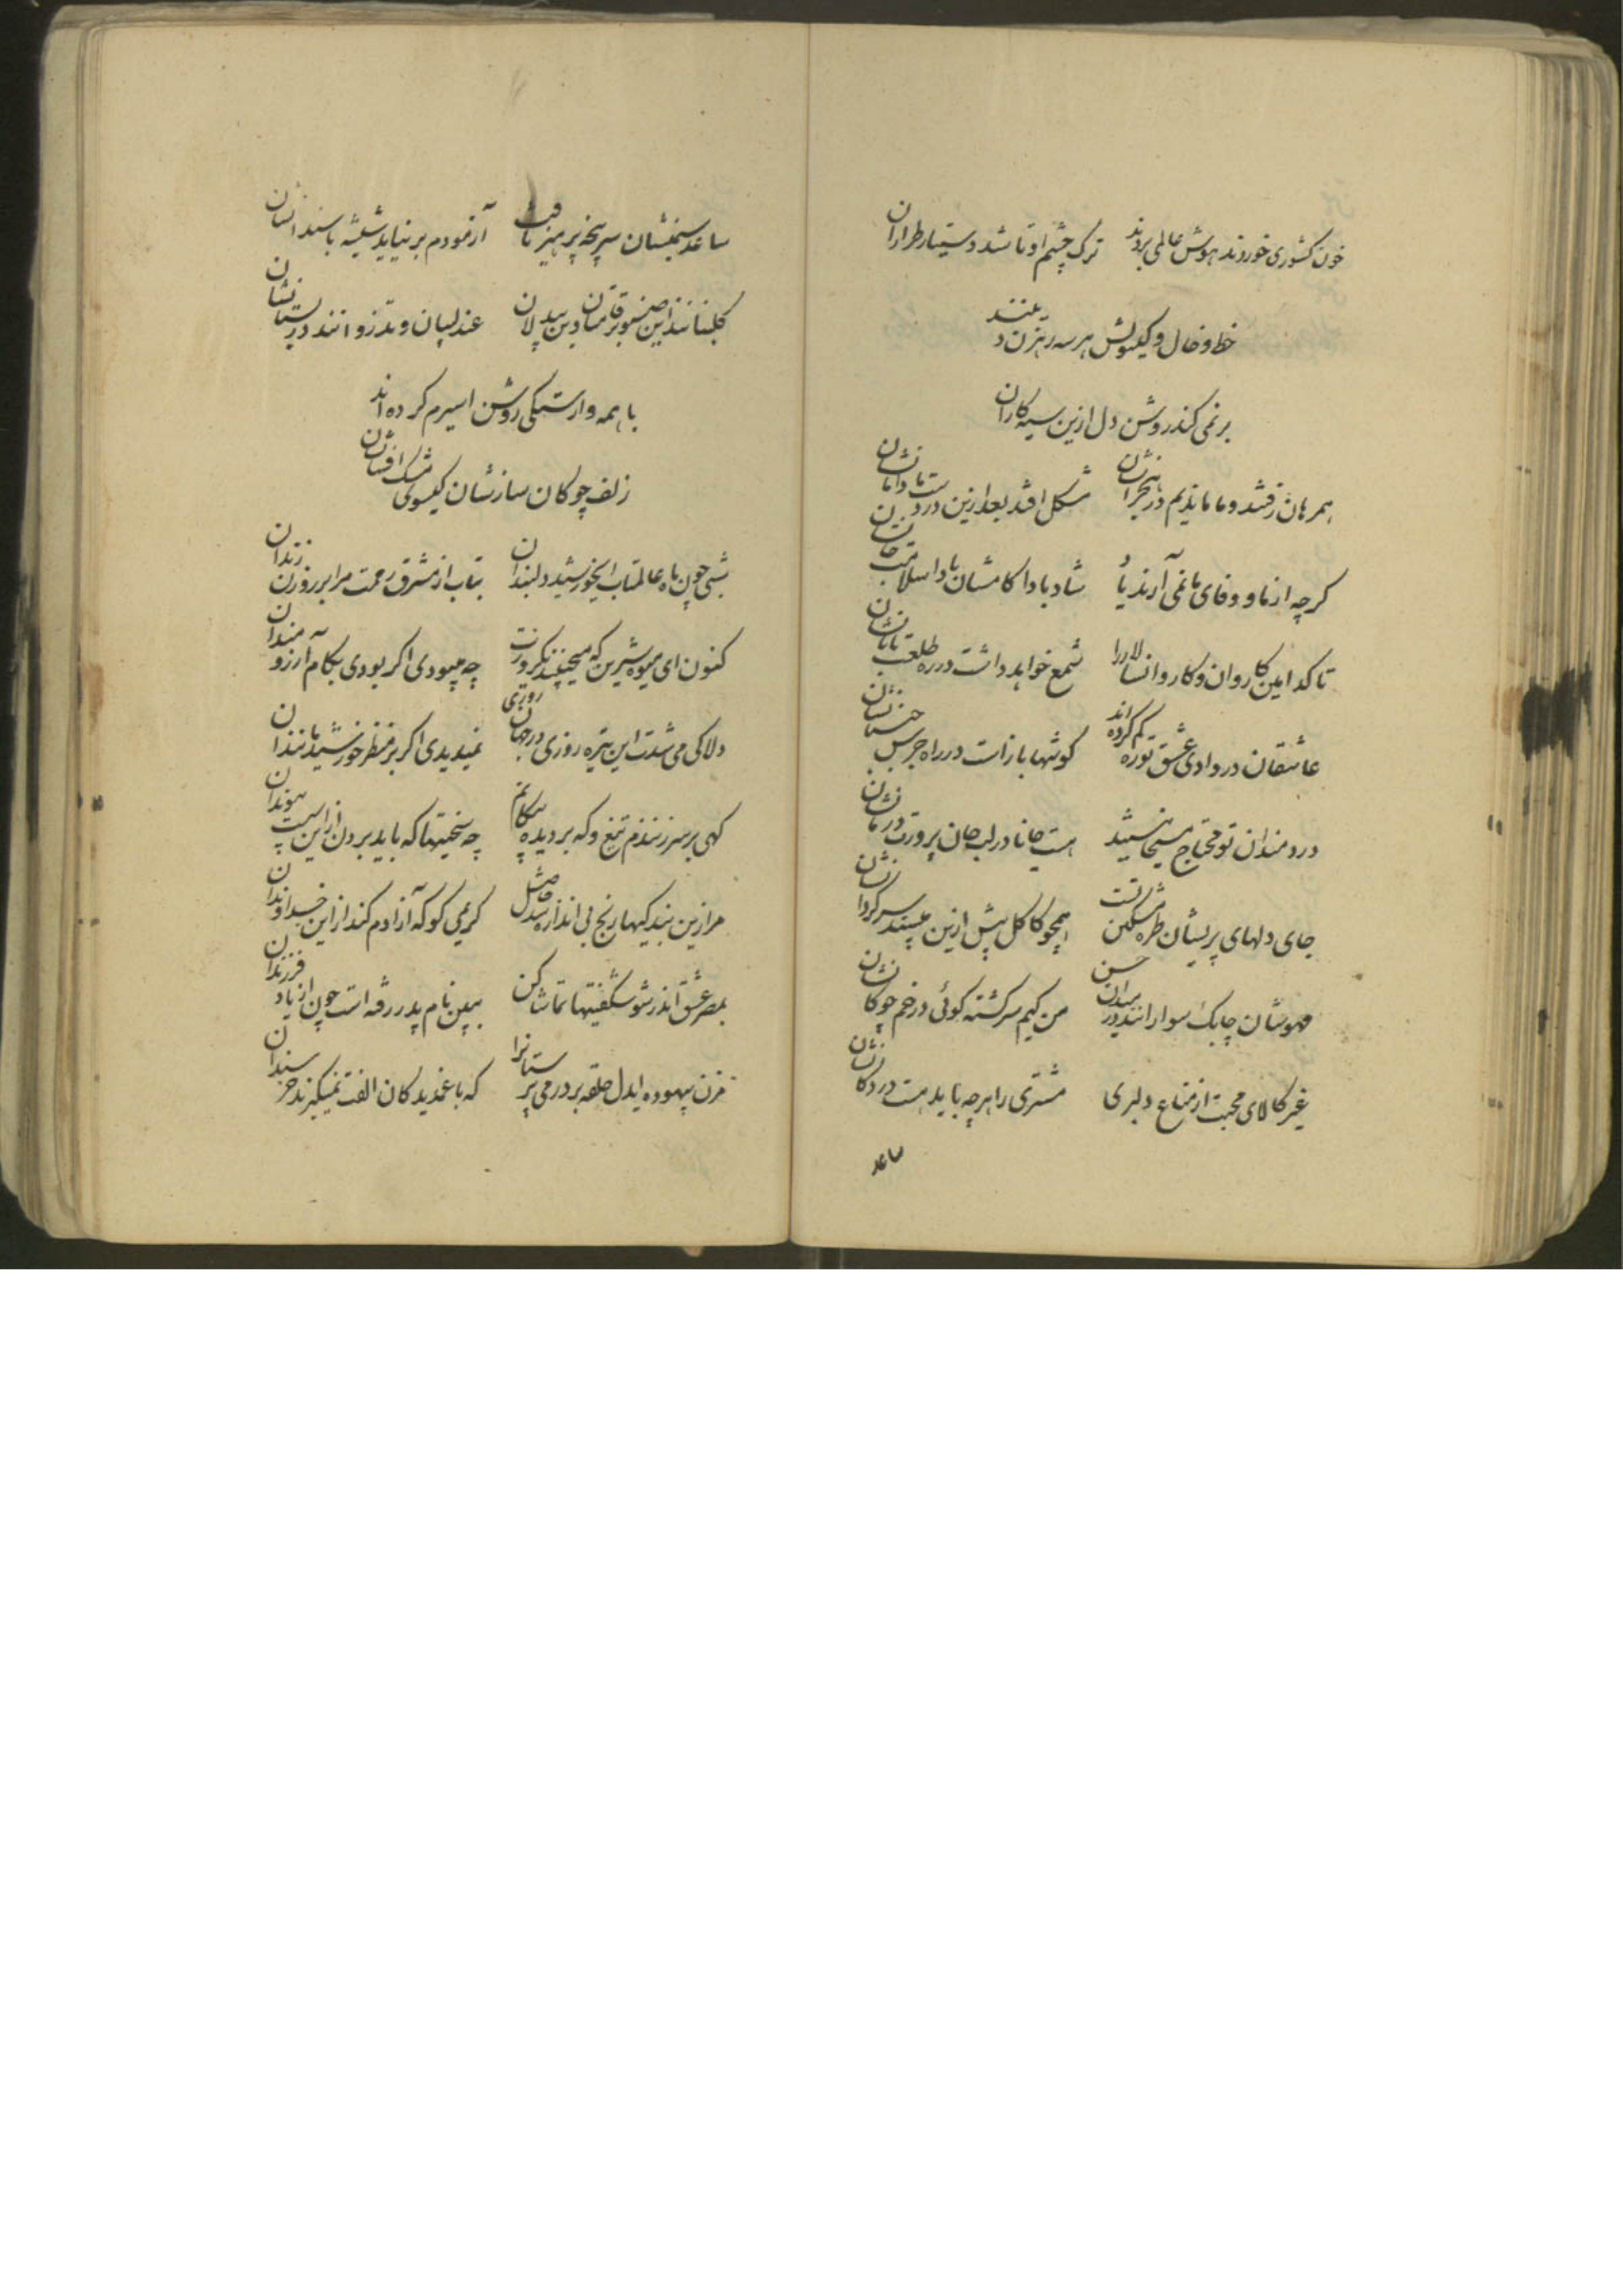 خون کشوری خوردند هوش عالمی بردند ترک چشم او تا شد دستیار طراران
خط و خال و کیسویش هر سه رهزن دلند
برنمی کند روشن دل ازین سیه کاران
همرهان رفتند و ما ماندیم در هجرانشان مشکل افتد بعد ازین در دست ما دامانشان
کرچه از ما و وفای ما نمی آرند یاد شاد بادا کامشان بادا سلامت جانشان
تا کدامین کاروان و کاروانسالار را شمع خواهد داشت در ره طلعت تابانشان
عاشقان در وادی عشق تو ره کم کرده اند کوشها باز است در راه جرس
دردمندان تو محتاج مسیحا نیستند هست جانا در لب جان پرورت درمانشان
جای دلهای پریشان طره مشکین تست همچو کاکل پیش ازین مپسند سرکردانشان
مهوشان چابک سوارانند در میدان حسن من کیم سرکشته کوئی در خم چوکانشان
غیر کالای محبت از متاع دلبری مشتری را هرچه باید هست در دکانشان
ساعد
ساعد سیمینشان سرپنجه پرهیز تافت آزمودم برنیاید شیشه با سندانشان
کلبنانند این صنوبر قامتان وین بیدلان عندلیبان و تذروانند در بستانشان
با همه وارستکی روشن اسیرم کرده اند
زلف چوکان ساز شان کیسوی مشک افشان
شبی چون ماه عالمتاب ایخورشید دلبندان بتاب از مشرق رحمت مرا بر روزن زندان
کنون ای میوه شیرین که میچینند هر روزت چه میبودی اکر بودی بکام آرزومندان
دلا کی می شدت این تیره روزی در جهان روزی نمیدیدی اکر بر منظر خورشید مانندان
کهی بر سر زنندم تیغ و که بر دیده پیکانم چه سختیها که باید بردن از این سست پیوندان
مرا زین بندکیها رنج بی اندازه شد حاصل کریمی کو که آزادم کند از این خداوندان
بمصر عشق اندر شو شکفتیها تماشا کن ببین نام پدر رفه است چون از یاد فرزندان
مزن بیهوده ایدل حلقه بر در می پرستانرا که با غمدیدکان الفت نمیکیرند خرسندان